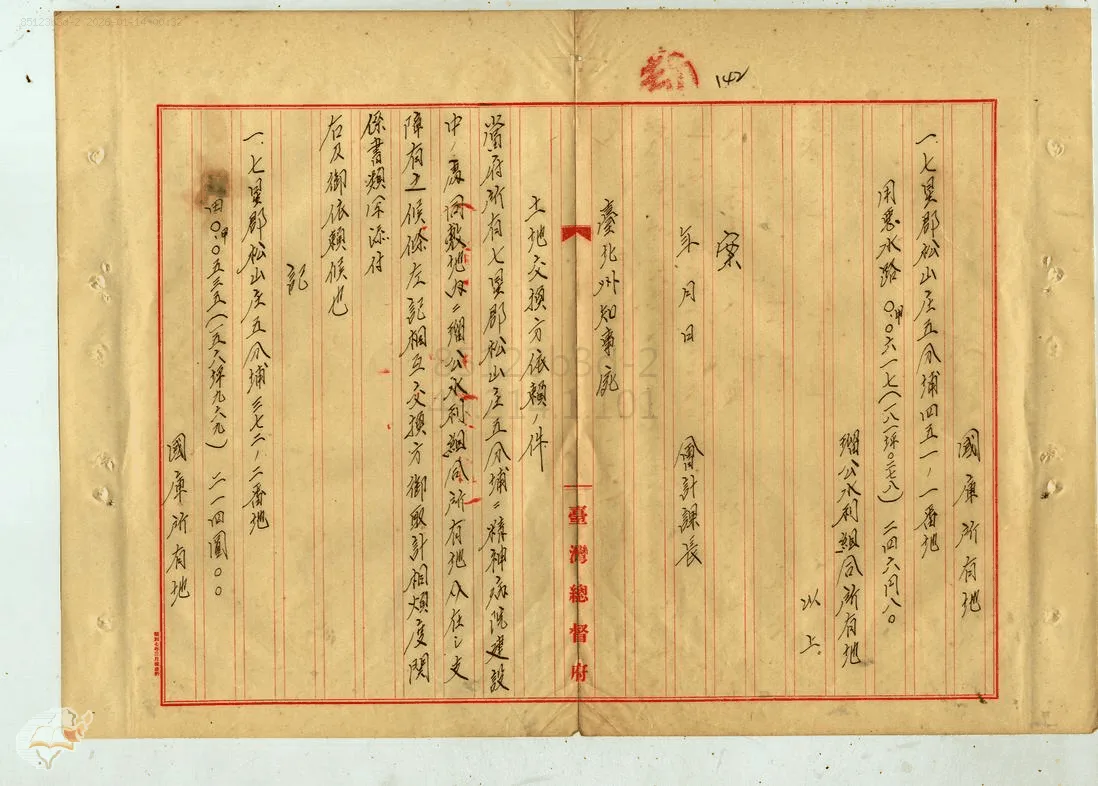 142
國庫所有地
一、七星郡松山庄五分埔四五一ノ一番地
用悪水路 〇甲.〇六一七(一八一坪〇二七八) 二四六円八〇
瑠公水利組合所有地
以上。
案
年 月 日
會計課長
臺北州知事宛
臺灣總督府
土地交換方依賴ノ件
當府所有七星郡松山庄五分埔ニ精神病院建設
中ノ處同敷地内ニ瑠公水利組合所有地介在シ支
障有之候條左記相互交換方御取計相煩度関
係書類添付
右及御依賴候也
記
一、七星郡松山庄五分埔三七二ノ二番地
田 〇甲.〇五三五(一五六坪九六九) 二一四圓〇〇
國庫所有地